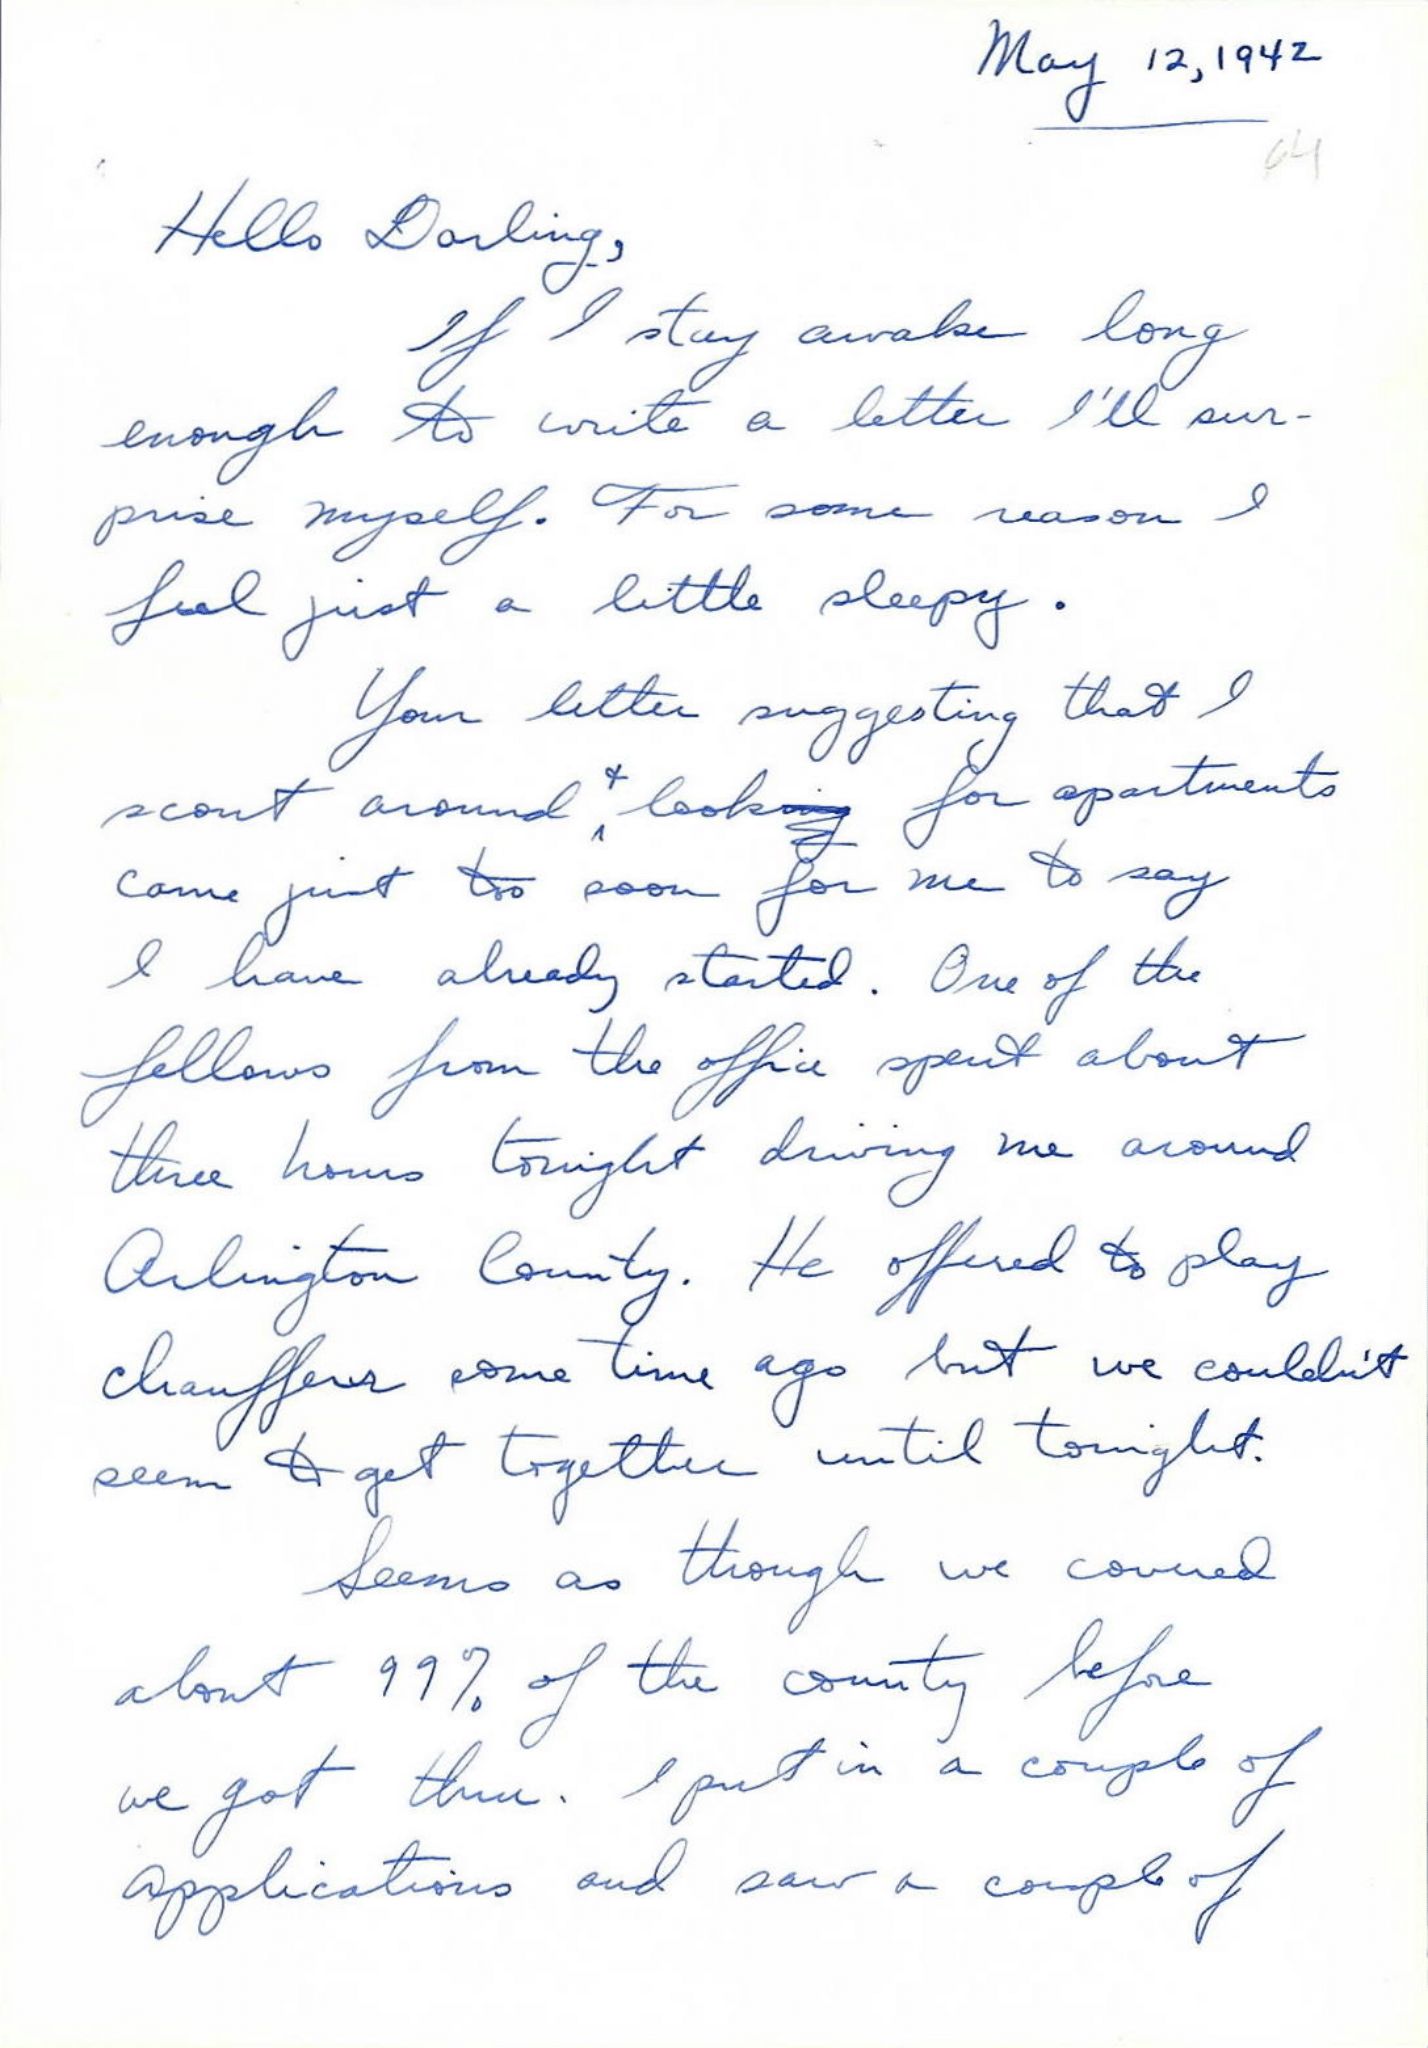 May 12, 1942
64
Hello Darling,
If I stay awake long
enough to write a letter I'll sur-
prise myself. For some reason I
feel just a little sleepy.
Your letter suggesting that I
scout around + looking for apartments
came just too soon for me to say
I have already started. One of the
fellows from the office spent about
three hours tonight driving me around
Arlington County. He offered to play
chauffeur some time ago but we couldn't
seem to get together until tonight.
Seems as though we covered
about 99% of the county before
we got thru. I put in a couple of
applications and saw a couple of